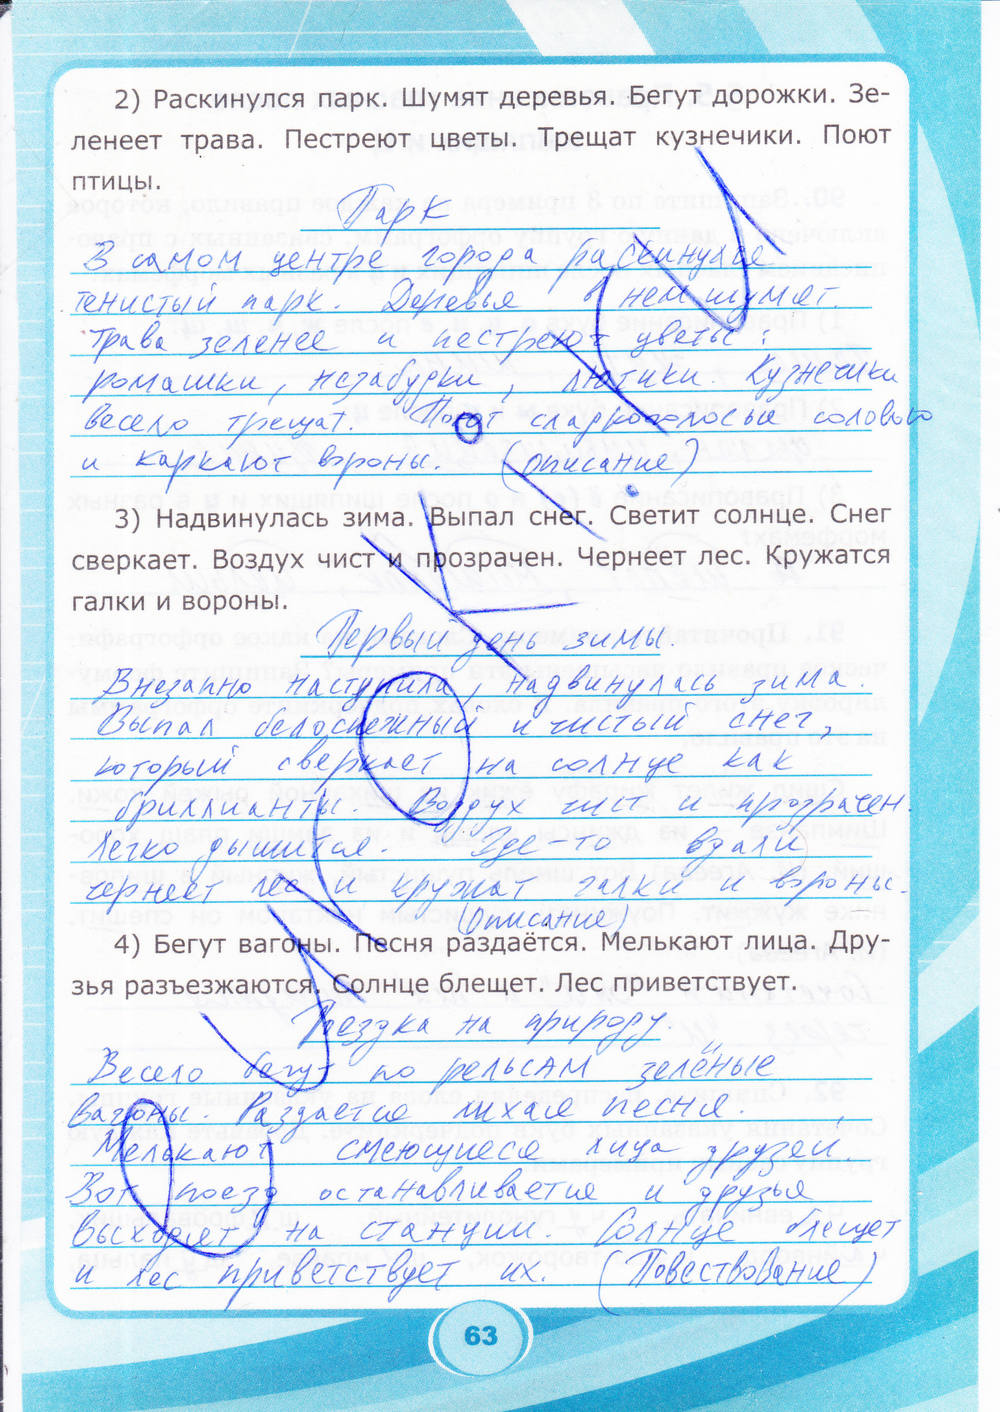 2) Раскинулся парк. Шумят деревья. Бегут дорожки. Зе-
ленеет трава. Пестреют цветы. Трещат кузнечики. Поют
птицы.
Парк
В самом центре города раскинулся
тенистый парк. Деревья в нем шумят.
Трава зеленее и пестреют цветы:
ромашки, незабудки, лютики. Кузнечики
весело трещат. Поют сладкоголосые соловью
и каркают вороны. (описание)
3) Надвинулась зима. Выпал снег. Светит солнце. Снег
сверкает. Воздух чист и прозрачен. Чернеет лес. Кружатся
галки и вороны.
Первый день зимы.
Внезапно наступила, надвинулась зима.
Выпал белоснежный и чистый снег,
который сверкает на солнце как
бриллианты. Воздух чист и прозрачен.
Легко дышится. Где-то вдали
чернеет лес и кружат галки и вороны.
(Описание)
4) Бегут вагоны. Песня раздаётся. Мелькают лица. Дру-
зья разъезжаются. Солнце блещет. Лес приветствует.
Поездка на природу.
Весело бегут по рельсам зелёные
вагоны. Раздается лихая песня.
Мелькают смеющиеся лица друзей.
Вот поезд останавливается и друзья
выходят на станции. Солнце блещет
и лес приветствует их. (Повествование)
63